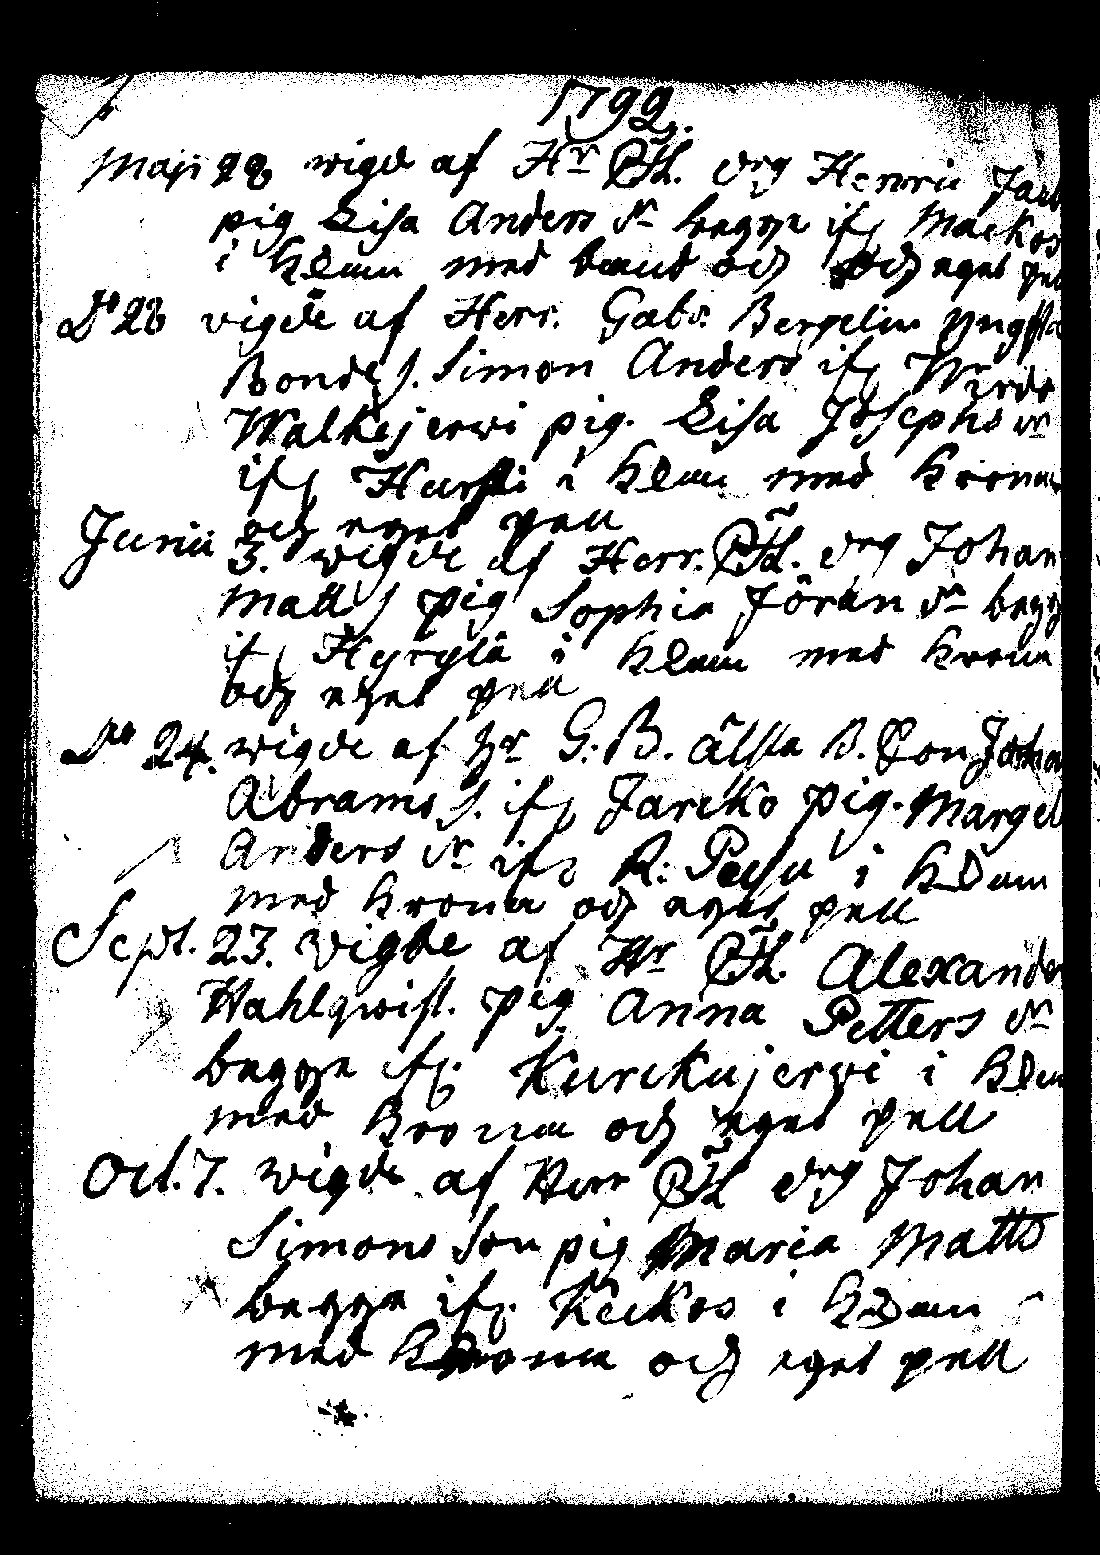 1799.
Maji 22 wigde af Hr Th. drg Henric Jac
pig Lisa Anders dr begge ifr Mackos
i Kleun med baud och och eget pel
Do 28 vigde af Herr. Gabr. Bergelin yngsta
Bonde S. Simon Anders ifr Wirda
Walkejerwi pig. Lisa Josephs dr
ifr Hurski i Kleun med krona
och eget pell
Junii 3. wigde af Herr. Th. drg Johan
Matt S pig Sophia Jöran dr begg
ifr Hyrylä i Kleun med krona
och eget pell
Do 24. wigde af Hr G. B. älsta B. Son Joha
Abrams S. ifr Jareko pig. Marget
Anders dr ifr R: i Kleun
med krona och eget pell
Sept. 23. vigde af Hr Th. Alexander
Wahlqwist. pig Anna Petters dr
begge ifr. Kurckujerwi i Kleu
med krona och eget pell
Oct. 7. wigde af Herr Th drg Johan
Simons Son pig Maria Matts
begge ifr. Keckos i Kleun
med Krona och eget pell